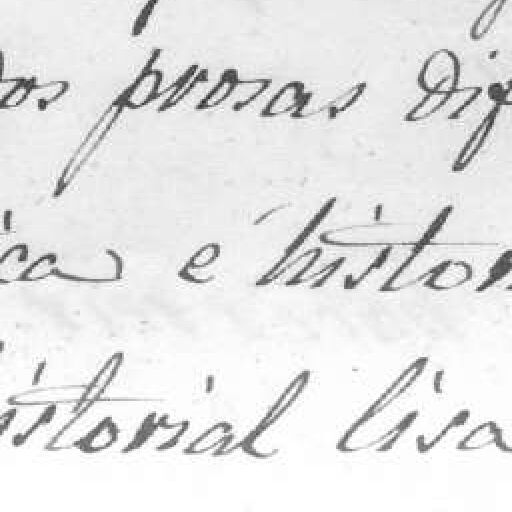 dos prosas dif
ica e histor
istorial lisa